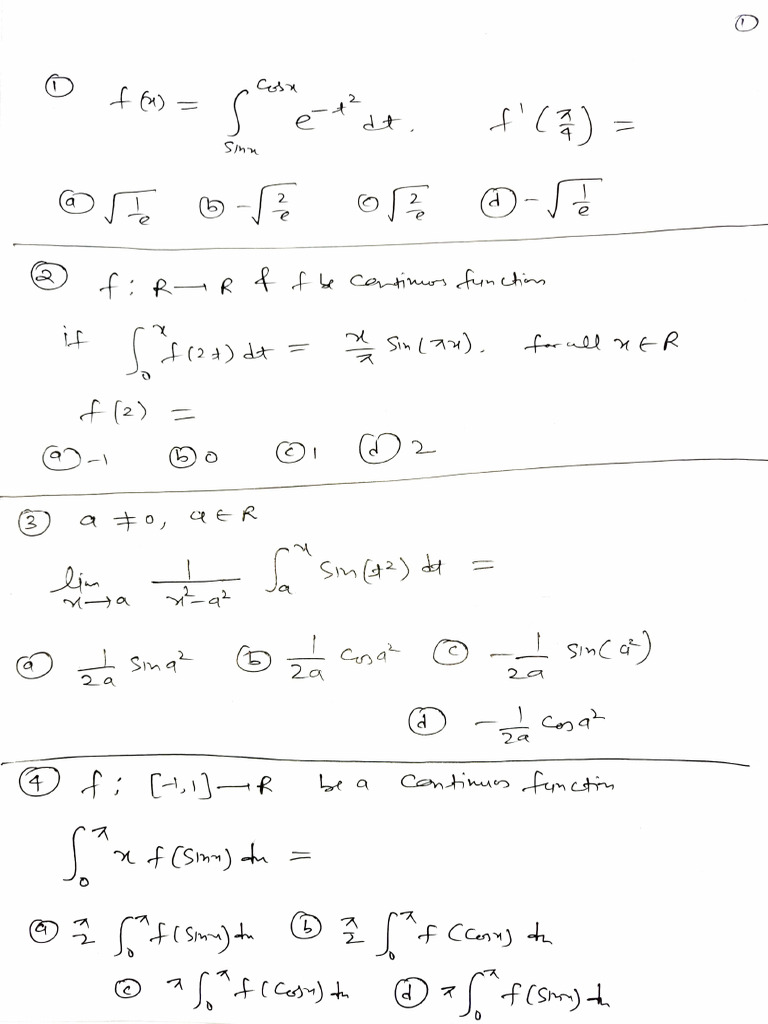 ①
① f(x) = ∫_{sinx}^{cosx} e^{-t²} dt. f'(π/4) =
ⓐ √(1/e) ⓑ -√(2/e) ⓒ √(2/e) ⓓ -√(1/e)
② f : R → R & f be continuos function
if ∫_0^x f(2t) dt = x/π sin(πx). for all x ∈ R
f(2) =
ⓐ -1 ⓑ 0 ⓒ 1 ⓓ 2
③ a ≠ 0, a ∈ R
lim_{x→a} 1/(x²-a²) ∫_a^x sin(t²) dt =
ⓐ 1/2a sin a² ⓑ 1/2a cos a² ⓒ -1/2a sin(a²)
ⓓ -1/2a cos a²
④ f : [-1,1] → R be a continuos function
∫_0^π x f(sinx) dx =
ⓐ π/2 ∫_0^π f(sinx) dx ⓑ π/2 ∫_0^π f(cosx) dx
ⓒ π ∫_0^π f(cosx) dx ⓓ π ∫_0^π f(sinx) dx